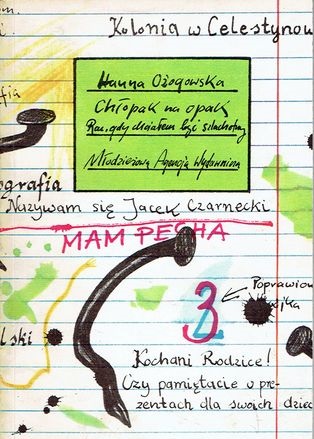 Kolonia w Celestynow
Hanna Ożogowska
Chłopak na opak
Raz, gdy chciałem być szlachetny
Młodzieżowa Agencja Wydawnicza
ografia
Nazywam się Jacek Czarnecki
MAM PECHA
3
Poprawion
lski
Kochani Rodzice!
Czy pamiętacie o pre-
zentach dla swoich dziec